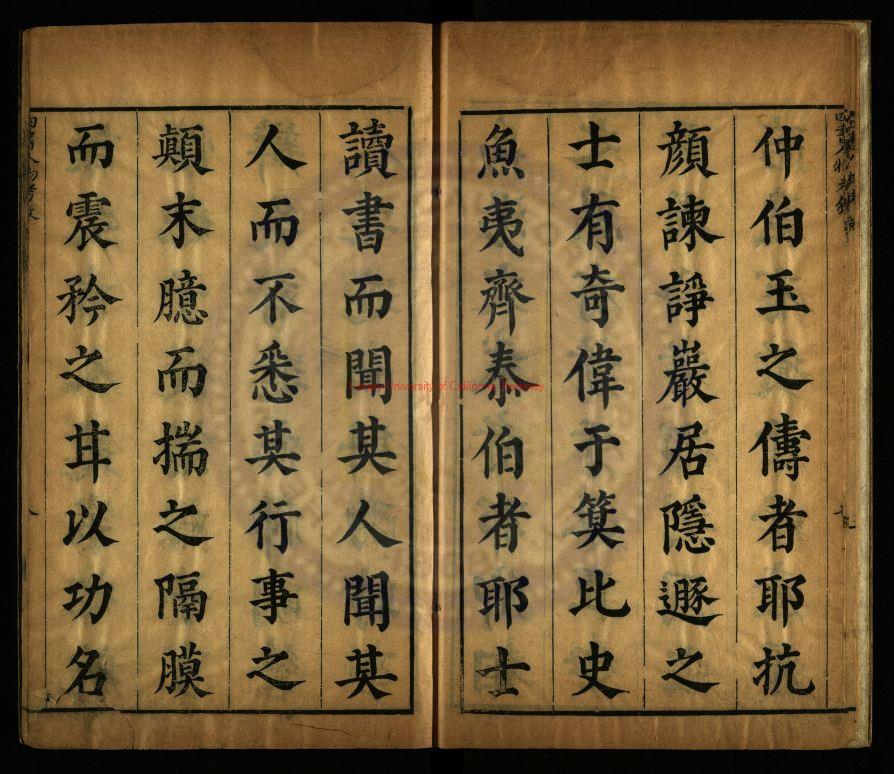 仲伯玉之儔者耶抗
顏諫諍嚴居隱遯之
士有奇偉于箕比史
魚夷齊泰伯者耶士
讀書而聞其人聞其
人而不悉其行事之
顛末臆而揣之隔膜
而震矜之耳以功名
University of California